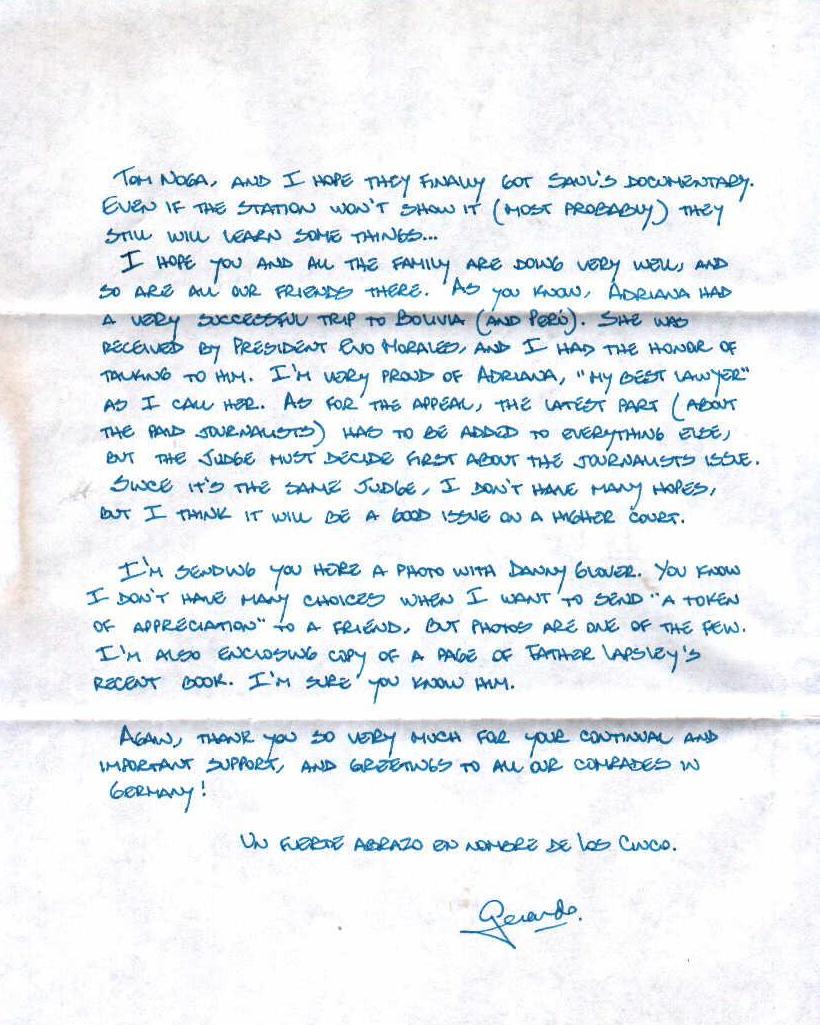 TOM NOGA, AND I HOPE THEY FINALLY GOT SAUL'S DOCUMENTARY.
EVEN IF THE STATION WON'T SHOW IT (MOST PROBABLY) THEY
STILL WILL LEARN SOME THINGS...
I HOPE YOU AND ALL THE FAMILY ARE DOING VERY WELL, AND
SO ARE ALL OUR FRIENDS THERE. AS YOU KNOW, ADRIANA HAD
A VERY SUCCESSFUL TRIP TO BOLIVIA (AND PERÚ). SHE WAS
RECEIVED BY PRESIDENT EVO MORALES, AND I HAD THE HONOR OF
TALKING TO HIM. I'M VERY PROUD OF ADRIANA, "MY BEST LAWYER"
AS I CALL HER. AS FOR THE APPEAL, THE LATEST PART (ABOUT
THE PAID JOURNALISTS) HAS TO BE ADDED TO EVERYTHING ELSE,
BUT THE JUDGE MUST DECIDE FIRST ABOUT THE JOURNALISTS ISSUE.
SINCE IT'S THE SAME JUDGE, I DON'T HAVE MANY HOPES,
BUT I THINK IT WILL BE A GOOD ISSUE ON A HIGHER COURT.
I'M SENDING YOU HERE A PHOTO WITH DANNY GLOVER. YOU KNOW
I DON'T HAVE MANY CHOICES WHEN I WANT TO SEND "A TOKEN
OF APPRECIATION" TO A FRIEND, BUT PHOTOS ARE ONE OF THE FEW.
I'M ALSO ENCLOSING COPY OF A PAGE OF FATHER LAPSLEY'S
RECENT BOOK. I'M SURE YOU KNOW HIM.
AGAIN, THANK YOU SO VERY MUCH FOR YOUR CONTINUAL AND
IMPORTANT SUPPORT, AND GREETINGS TO ALL OUR COMRADES IN
GERMANY!
UN FUERTE ABRAZO EN NOMBRE DE LOS CINCO.
Gerardo.